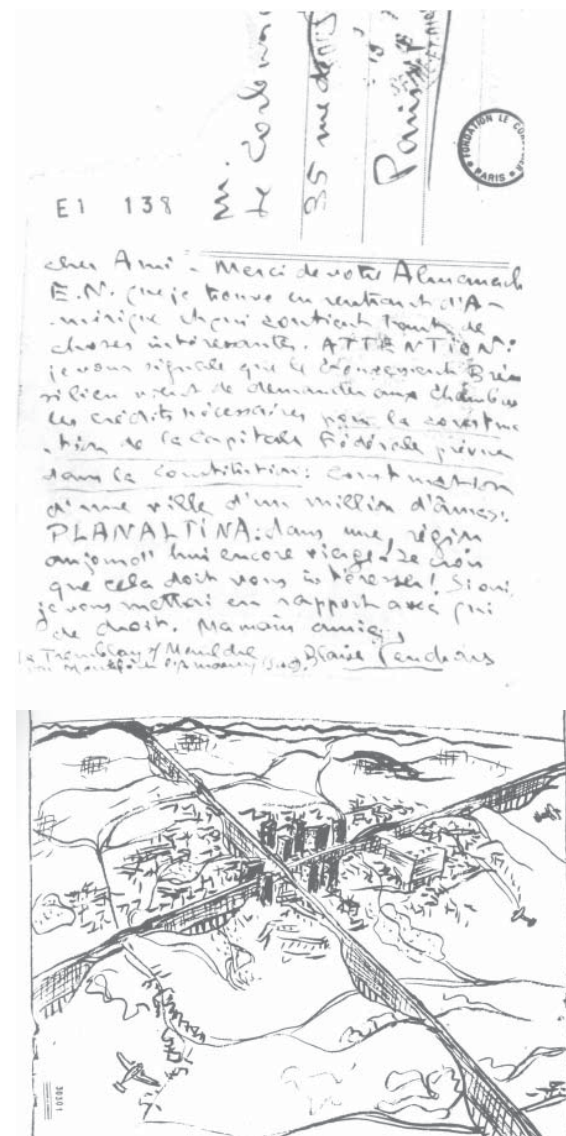 M.
Le Corbusier
35 rue de
Paris
FONDATION LE CO
PARIS
E1 138
cher Ami - Merci de votre Almanach
E.N. que je trouve en rentrant d'A-
mérique et qui contient tant de
choses intéressantes. ATTENTION:
je vous signale que le Gouvernement Brési
silien vient de demander aux Chambres
les crédits nécessaires pour la construc
tion de la Capitale Fédérale prévue
dans la Constitution: construction
d'une ville d'un million d'âmes:
PLANALTINA: dans une région
aujourd'hui encore vierge! Je crois
que cela doit vous intéresser! Si oui,
je vous mettrai en rapport avec qui
de droit. Ma main amie,
Le Tremblay s/ Mauldre Blaise Cendrars
Montfort l'Amaury
30301